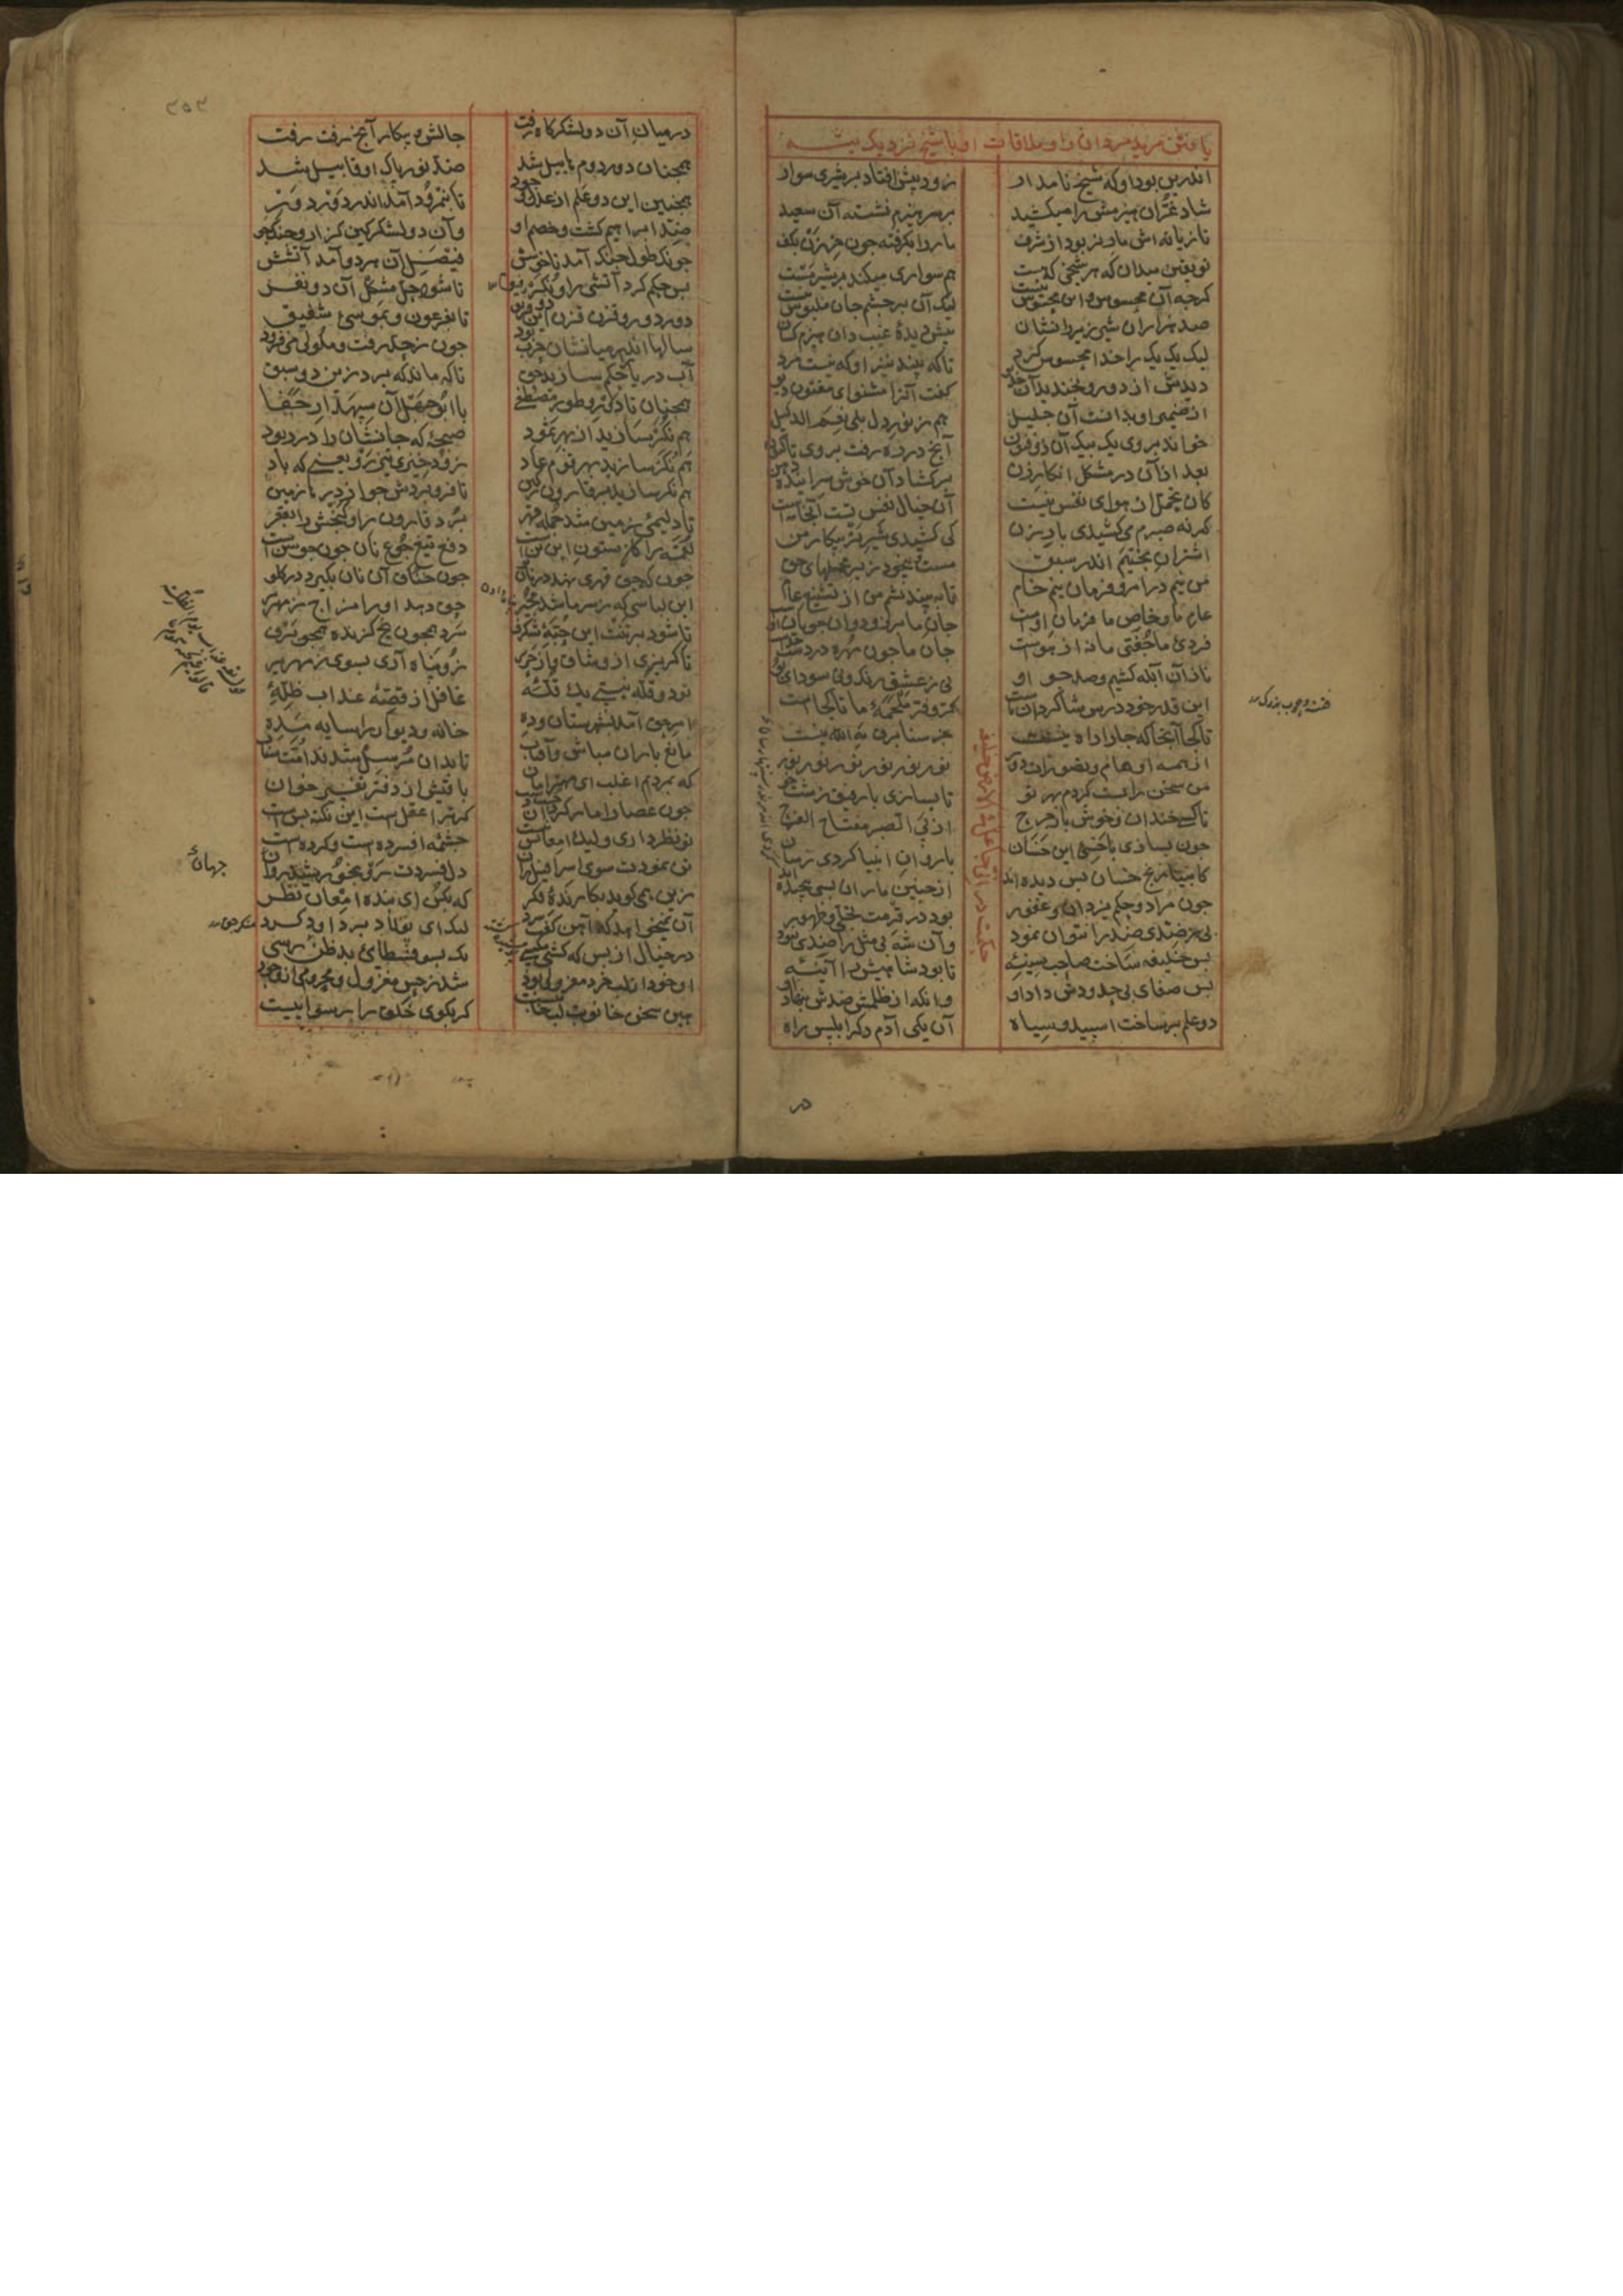 یافتن مرید مراد را و ملاقات او با شیخ نزدیک بیشه
اندرین بود او که شیخ نامدار زود پیش افتاد بر شیری سوار
شیر غران هیزمش را میکشید بر سر هیزم نشسته آن سعید
تازیانه اش مار نر بود از شرف مار را بکرفته چون خرزن بکف
تو یقین میدان که هر شیخی که هست هم سواری میکند بر شیر مست
کرچه آن محسوس و این محسوس نیست لیک آن بر چشم جان ملبوس نیست
صد هزاران شیر زیر رانشان پیش دیدهٔ غیب دان هیزم کشان
لیک یک یک را خدا محسوس کرد تا که بیند نیز او که نیست مرد
دیدش از دور و بخندید آن خدیو کفت آنرا مشنو ای مفتون دیو
از ضمیر او بدانست آن جلیل هم ز نور دل بلی نعم الدلیل
خواند بر وی یک بیک آن ذو فنون آنچ در ره رفت بر وی تا کنون
بعد از آن در مشکل انکار زن بر کشاد آن خوش سراینده دهن
کان تحمل از هوای نفس نیست آن خیال نفس تست آنجا مایست
کر نه صبرم میکشیدی بار زن کی کشیدی شیر نر بیکار من
اشتران بختییم اندر سبق مست و بیخود زیر محملهای حق
من نیم در امر و فرمان نیم خام تا بیندیشم من از تشنیع عام
عام ما و خاص ما فرمان اوست جان ما بر رو دوان جویان اوست
فردی ما جفتی ما نه از هواست جان ما چون مهره در دست خداست
ناز آن ابله کشیم و صد چو او نی ز عشق رنک و نی سودای بو
این قدر خود درس شاکردان ماست کر و فر ملحمهٔ ما تا کجاست
تا کجا آنجا که جا را راه نیست جز سنا برق مه الله نیست
از همه اوهام و تصویرات دور نور نور نور نور نور نور
من سخن راست کردم بهر تو تا بسازی با رفیق زشت خو
تا کشی خندان و خوش بار حرج از پی الصبر مفتاح الفرج
چون بسازی با خسی این خسان
کانبیا رنج خسان بس دیده اند از چنین ماران بسی پیچیده اند
چون مراد و حکم یزدان غفور بود در قدمت تجلی و ظهور
بی ز ضدی ضد را نتوان نمود وآن شه بی مثل را ضدی نبود
حکمت در انی جاعل فی الارض خلیفة
پس خلیفه ساخت صاحب سینهٔ تا بود شاهیش را آیینهٔ
بس صفای بی حدودش داد او وانکه از ظلمت ضدش بنهاد او
دو علم بر ساخت اسپید و سیاه آن یکی آدم دکر ابلیس راه
در
٣٥٣
در میان آن دو لشکرکاه زفت چالش و پیکار آنچ رفت رفت
همچنان دور دوم هابیل شد ضد نور پاک او قابیل شد
همچنین این دو علم از عدل و جور تا بنمرود آمد اندر دور دور
ضد ابراهیم کشت و خصم او وآن دو لشکر کین کزار و جنک جو
چونک طول جنک آمد ناخوشش فیصل آن هر دو آمد آتشش
پس حکم کرد آتشی را و نکر تا شود حل مشکل آن دو نفر
دور دور و قرن قرن این دو فریق تا بفرعون و بموسی شفیق
سالها اندر میانشان حرب بود چون ز حد رفت و ملولی می فزود
آب دریا را حکم سازید حق تا که ماند که برد زین دو سبق
همچنان تا دور و طور مصطفی با ابوجهل آن سپهدار جفا
هم نکر سازید از بهر ثمود صیحهٔ که جانشان را در ربود
هم نکر سازید بهر قوم عاد زود خیزی تیزرو یعنی که باد
هم نکر سازید بر قارون ز کین
تا حلیمی زمین شد جمله قهر برد قارون را و کنجش را بقعر
لقمهٔ را کو ستون این تنست دفع تیغ جوع نان چون جوشنست
چونکه حق قهری نهد در نان تو چون خناق آن نان بکیرد در کلو
این لباسی که ز سرما شد مجیر حق دهد او را مزاج زمهریر
تا شود بر تنت این جبهٔ شکرف سرد همچون یخ کزنده همچو برف
تا کریزی از وشق و از حریر زو پناه آری بسوی زمهریر
تو دو قله نیستی یک قلهٔ غافل از قصهٔ عذاب ظلهٔ
امر حق آمد بشهرستان و ده خانه و دیوار را سایه مده
مانع باران مباش و آفتاب تا بدان مرسل شدند امت شتاب
که بمردیم اغلب ای مهتر امان باقیش از دفتر تفسیر خوان
چون عصا را مار کرد آن چست دست کر ترا عقلست این نکته بس است
تو نظر داری ولیک امعانش نیست چشمه افسرده است و کرده ایست
زین همی کوید نکارندهٔ فکر که بکن ای بنده امعان نظر
آن نمیخواهد که آهن کوب سرد لیک ای پولاد بر داود کرد
تن بمردت سوی اسرافیل ران دل فسردت رو بخورشید روان
در خیال از بس که کشتی مکتسی نک بسوفسطایی بدظن رسی
او خود از لب خرد معزول بود شد ز حس معزول و محروم از وجود
هین سخن خا نوبت لب خاییست کر بکویی خلق را رسواییست
جهانهٔ